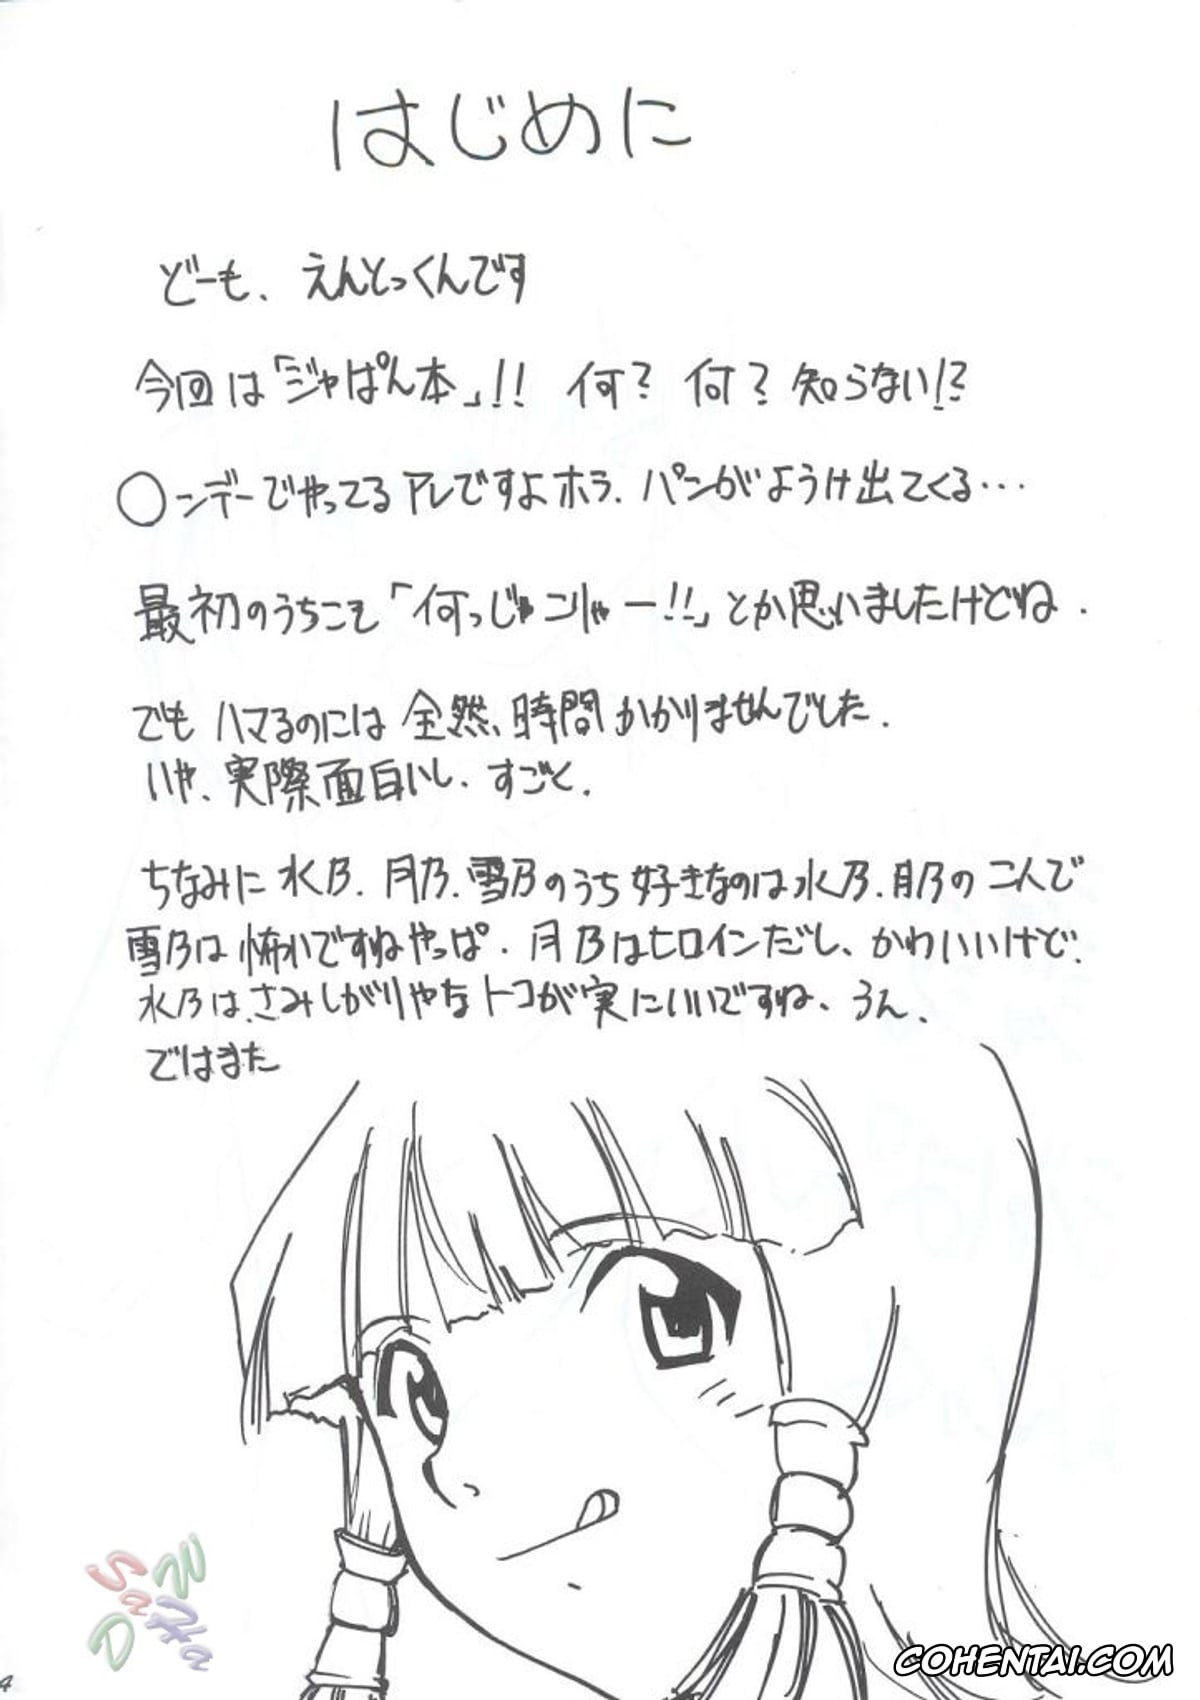 はじめに
どーも、えんとっくんです
今回は「ジャぱん本」!! 何? 何? 知らない!?
○ンデーでやってるアレですよホラ、パンがようけ出てくる…
最初のうちこそ「何っじゃこりゃー!!」とか思いましたけどね.
でもハマるのには全然、時間かかりませんでした.
いや、実際面白いし、すごく.
ちなみに水乃.月乃.雪乃のうち好きなのは水乃.月乃の二人で
雪乃は怖いですねやっぱ.月乃はヒロインだし、かわいいけど.
水乃は、さみしがりやなトコが実にいいですね、うん.
ではまた
SaW
DHa
4
COHENTAI.COM